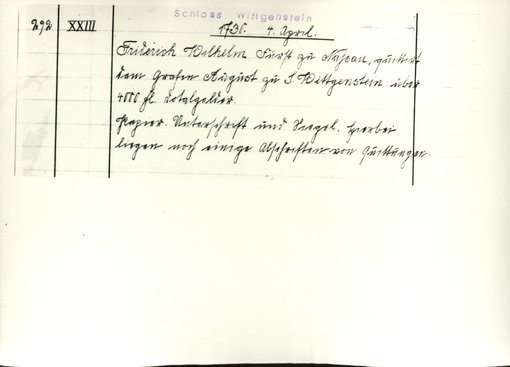 Schloss Wittgenstein
292 XXIII 1730. 4. April.
Friderich Wilhelm Fürst zu Nassau, quittirt
dem Grafen August zu S. Wittgenstein über
4000 fl. Dotalgelder.
Papier. Unterschrift und Siegel. Hierbei
liegen noch einige Abschriften von Quittungen.